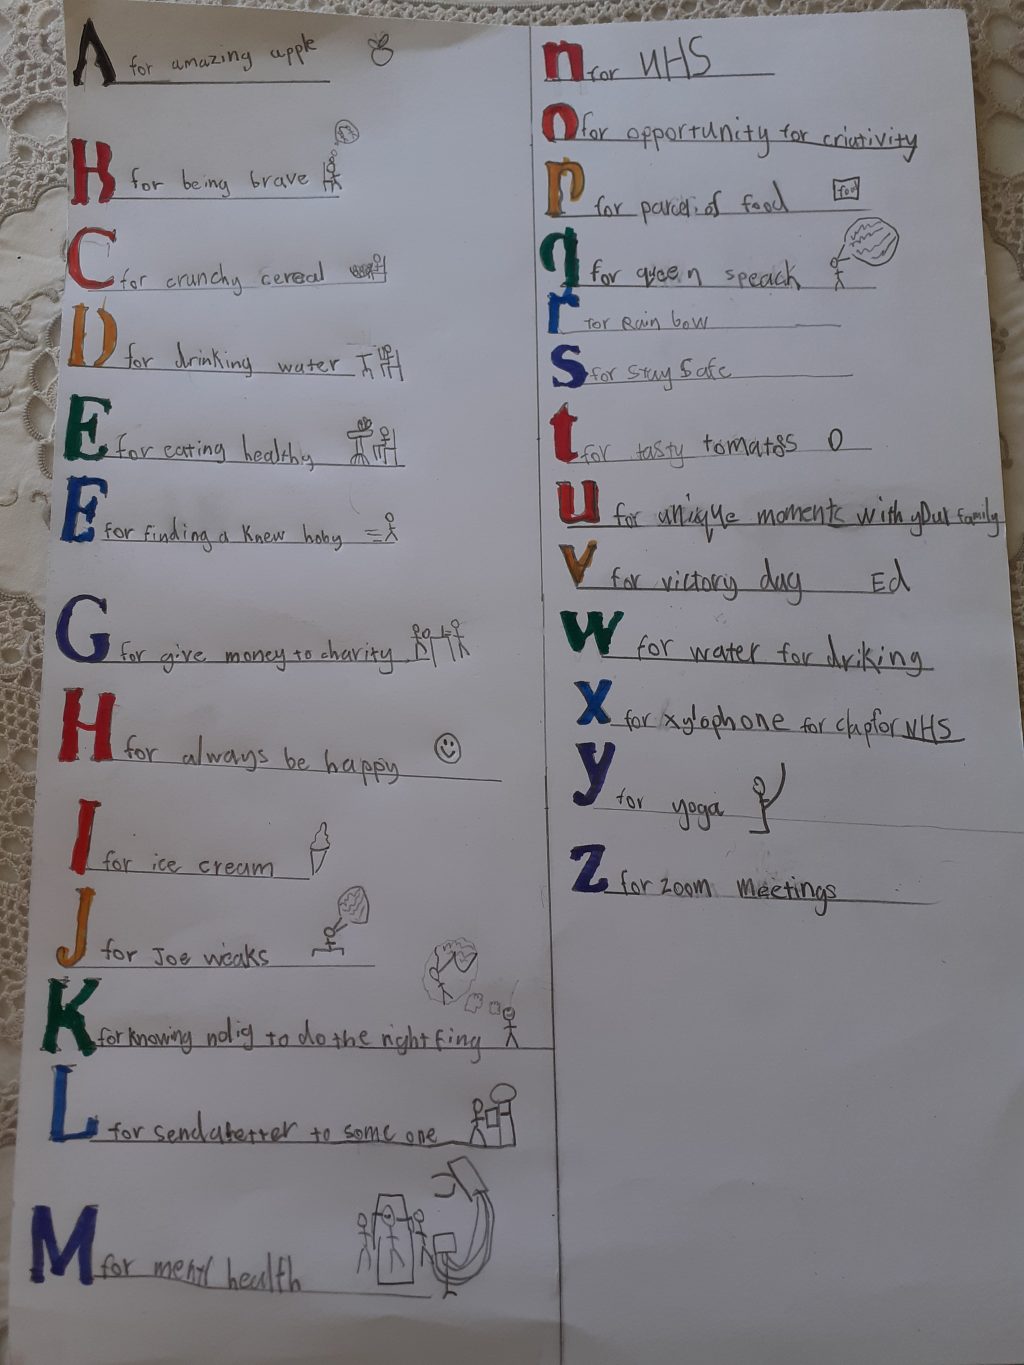 A for amazing apple
B for being brave
C for crunchy cereal
D for drinking water
E for eating healthy
E for finding a knew hoby
G for give money to charity
H for always be happy
I for ice cream
J for Joe weaks
K for knowing nolig to do the right fing
L for send a letter to some one
M for mentl health
n for NHS
o for opportunity for criativity
P for parcel of food
food
q for queen speach
r for Rain bow
S for Stay Safe
t for tasty tomatos
u for unique moments with your family
v for victory day Ed
w for water for driking
x for xylophone for clap for NHS
y for yoga
Z for zoom meetings